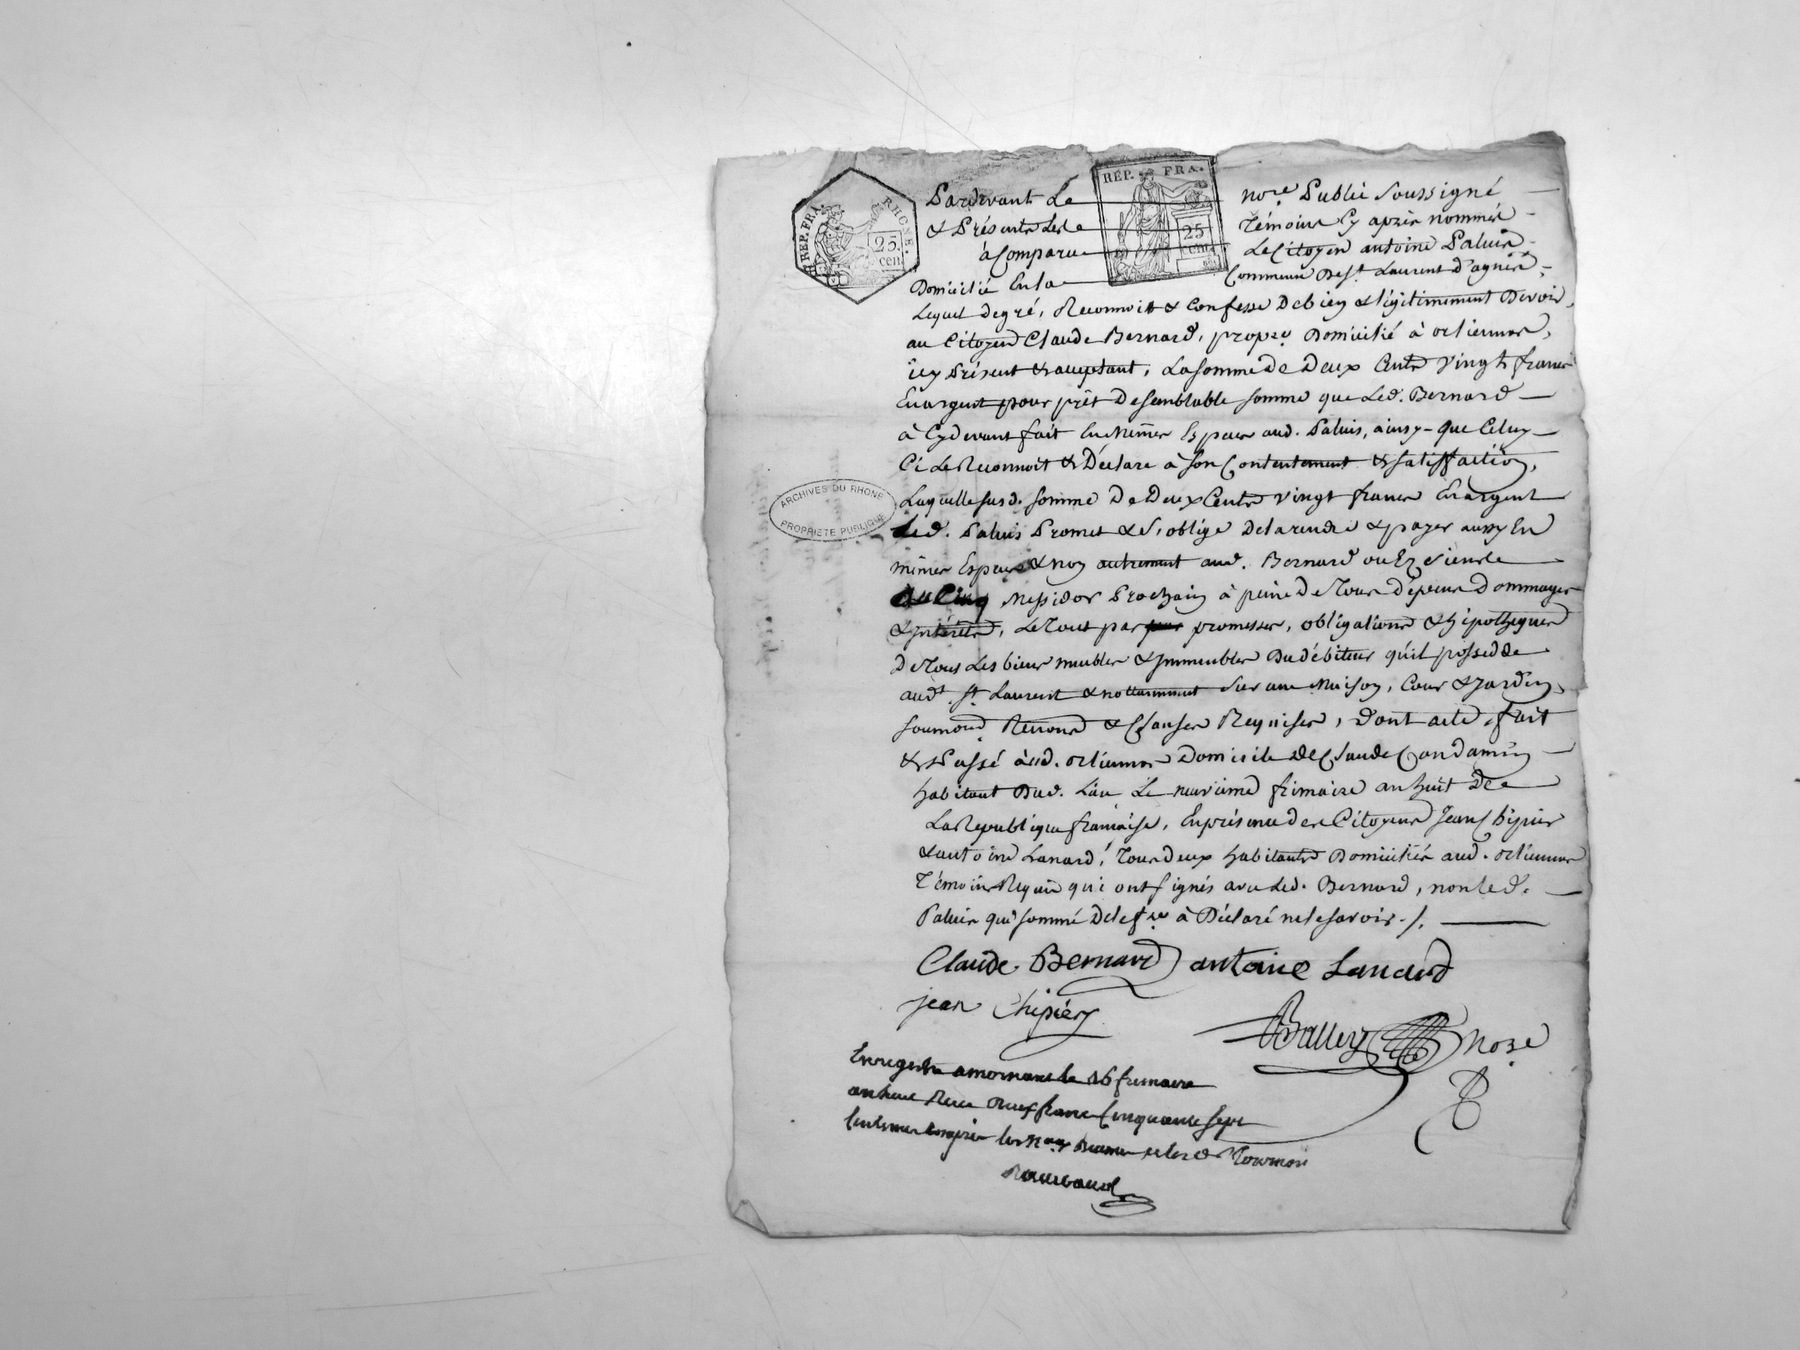 Pardevant Le nore Public Soussigné
& Présents Les Témoins Cy après nommés
à Comparu Le Citoyen antoine Paluis
Domicilié En la Commune De St Laurent d'agnis
Lequel de gré, Reconnoit & Confesse De bien & légitimement Devoir
au Citoyen Claude Bernard, propre Domicilié à orlienas,
icy Présent & acceptant, La somme De Deux Cents Vingt francs
En argent pour prêt De semblable somme que Led. Bernard
à Cydevant fait En Mêmes Espèces aud. Paluis, ainsy que Celuy
Ci Le Reconnoit & Déclare à Son Contentement & Satisffaction,
Laquelle susd. somme De Deux Cents Vingt francs En argent
Led. Paluis Promet & S'oblige De la rendre & payer aussy En
mêmes Espèces & non autrement aud. Bernard ou Es siens Le
Messidor Prochain à peine De Tous dépens Dommages
& Intérêts, Le Tout par promesses, obligations & hipothèques
De Tous Les biens meubles & Immeubles Du débiteur qu'il possedde
audt St Laurent & nottamment Sur une Maison, Cour & Jardin,
Soumond Renond & Clauses Requises, Dont acte, fait
& Passé aud. orlienas Domicile De Claude Condamin
habitant Dud. Lieu Le neuvième frimaire an huit De
La République française, En présence des Citoyens Jean Chipier
& antoine Lanard, Tous deux habitants Domiciliés aud. orlienas
Témoins Requis qui ont signés avec Led. Bernard, non led.
Paluis qui sommé De le fre à Déclaré ne le savoir ./.
Claude Bernard antoine Lanard
jean Chipiér
Balley nore
Enregistré a mornant le 16 frimaire
an huit Reçu Deux francs Cinquante Sept
Centimes compris les
Raimbaud
REP. FRA. RHONE. 25. cen.
REP. FRA. 25 cen.
ARCHIVES DU RHONE
PROPRIETE PUBLIQUE